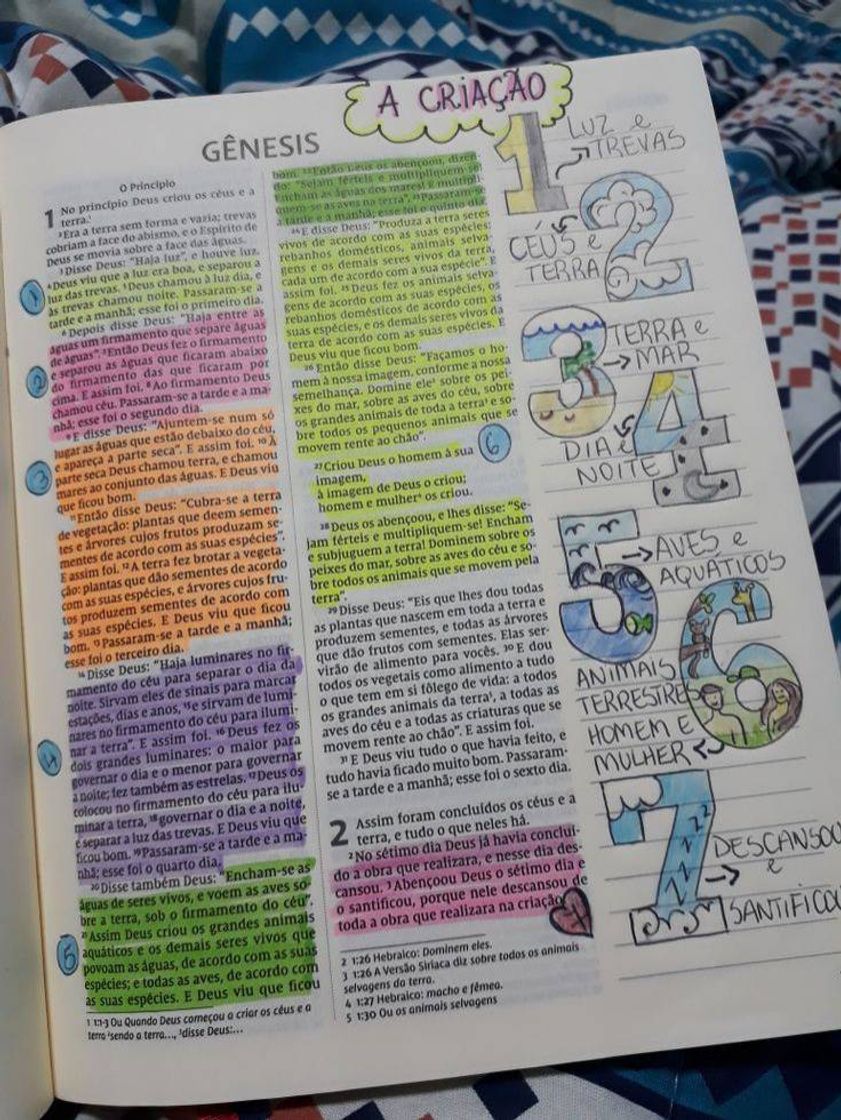 A CRIAÇÃO
GÊNESIS
O Princípio
1 No princípio Deus criou os céus e a
terra.¹
²Era a terra sem forma e vazia; trevas
cobriam a face do abismo, e o Espírito de
Deus se movia sobre a face das águas.
³Disse Deus: "Haja luz", e houve luz.
⁴Deus viu que a luz era boa, e separou a
luz das trevas. ⁵Deus chamou à luz dia, e
às trevas chamou noite. Passaram-se a
tarde e a manhã; esse foi o primeiro dia.
⁶Depois disse Deus: "Haja entre as
águas um firmamento que separe águas
de águas". ⁷Então Deus fez o firmamento
e separou as águas que ficaram abaixo
do firmamento das que ficaram por
cima. E assim foi. ⁸Ao firmamento Deus
chamou céu. Passaram-se a tarde e a ma-
nhã; esse foi o segundo dia.
⁹E disse Deus: "Ajuntem-se num só
lugar as águas que estão debaixo do céu,
e apareça a parte seca". E assim foi. ¹⁰À
parte seca Deus chamou terra, e chamou
mares ao conjunto das águas. E Deus viu
que ficou bom.
¹¹Então disse Deus: "Cubra-se a terra
de vegetação: plantas que deem semen-
tes e árvores cujos frutos produzam se-
mentes de acordo com as suas espécies".
E assim foi. ¹²A terra fez brotar a vegeta-
ção: plantas que dão sementes de acordo
com as suas espécies, e árvores cujos fru-
tos produzem sementes de acordo com
as suas espécies. E Deus viu que ficou
bom. ¹³Passaram-se a tarde e a manhã;
esse foi o terceiro dia.
¹⁴Disse Deus: "Haja luminares no fir-
mamento do céu para separar o dia da
noite. Sirvam eles de sinais para marcar
estações, dias e anos, ¹⁵e sirvam de lumi-
nares no firmamento do céu para ilumi-
nar a terra". E assim foi. ¹⁶Deus fez os
dois grandes luminares: o maior para
governar o dia e o menor para governar
a noite; fez também as estrelas. ¹⁷Deus os
colocou no firmamento do céu para ilu-
minar a terra, ¹⁸governar o dia e a noite,
e separar a luz das trevas. E Deus viu que
ficou bom. ¹⁹Passaram-se a tarde e a ma-
nhã; esse foi o quarto dia.
²⁰Disse também Deus: "Encham-se as
águas de seres vivos, e voem as aves so-
bre a terra, sob o firmamento do céu".
²¹Assim Deus criou os grandes animais
aquáticos e os demais seres vivos que
povoam as águas, de acordo com as suas
espécies; e todas as aves, de acordo com
as suas espécies. E Deus viu que ficou
1 1:1-3 Ou Quando Deus começou a criar os céus e a
terra ²sendo a terra..., ³disse Deus:...
1
2
3
4
5
bom. ²²Então Deus os abençoou, dizen-
do: "Sejam férteis e multipliquem-se!
Encham as águas dos mares! E multipli-
quem-se as aves na terra". ²³Passaram-se
a tarde e a manhã; esse foi o quinto dia.
²⁴E disse Deus: "Produza a terra seres
vivos de acordo com as suas espécies:
rebanhos domésticos, animais selva-
gens e os demais seres vivos da terra,
cada um de acordo com a sua espécie". E
assim foi. ²⁵Deus fez os animais selva-
gens de acordo com as suas espécies, os
rebanhos domésticos de acordo com as
suas espécies, e os demais seres vivos da
terra de acordo com as suas espécies. E
Deus viu que ficou bom.
²⁶Então disse Deus: "Façamos o ho-
mem à nossa imagem, conforme a nossa
semelhança. Domine ele² sobre os pei-
xes do mar, sobre as aves do céu, sobre
os grandes animais de toda a terra³ e so-
bre todos os pequenos animais que se
movem rente ao chão".
6
²⁷Criou Deus o homem à sua
imagem,
à imagem de Deus o criou;
homem e mulher⁴ os criou.
²⁸Deus os abençoou, e lhes disse: "Se-
jam férteis e multipliquem-se! Encham
e subjuguem a terra! Dominem sobre os
peixes do mar, sobre as aves do céu e so-
bre todos os animais que se movem pela
terra".
²⁹Disse Deus: "Eis que lhes dou todas
as plantas que nascem em toda a terra e
produzem sementes, e todas as árvores
que dão frutos com sementes. Elas ser-
virão de alimento para vocês. ³⁰E dou
todos os vegetais como alimento a tudo
o que tem em si fôlego de vida: a todos
os grandes animais da terra⁵, a todas as
aves do céu e a todas as criaturas que se
movem rente ao chão". E assim foi.
³¹E Deus viu tudo o que havia feito, e
tudo havia ficado muito bom. Passaram-
se a tarde e a manhã; esse foi o sexto dia.
2 Assim foram concluídos os céus e a
terra, e tudo o que neles há.
²No sétimo dia Deus já havia concluí-
do a obra que realizara, e nesse dia des-
cansou. ³Abençoou Deus o sétimo dia e
o santificou, porque nele descansou de
toda a obra que realizara na criação.
7
2 1:26 Hebraico: Dominem eles.
3 1:26 A Versão Siríaca diz sobre todos os animais
selvagens da terra.
4 1:27 Hebraico: macho e fêmea.
5 1:30 Ou os animais selvagens
1
LUZ e
TREVAS
2
CÉUS e
TERRA
3
TERRA e
MAR
4
DIA e
NOITE
5
AVES e
AQUÁTICOS
6
ANIMAIS
TERRESTRES
HOMEM E
MULHER
7
zzz
DESCANSOU
e
SANTIFICOU